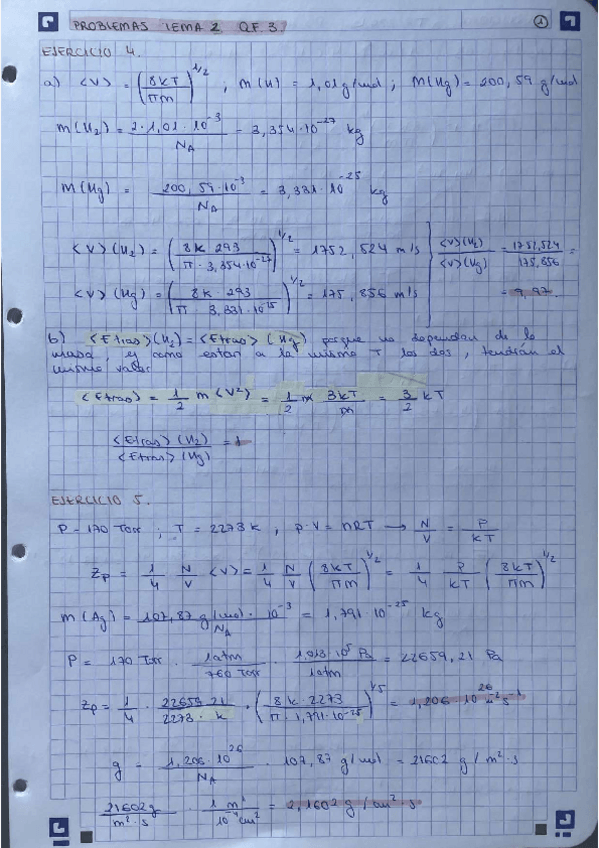 PROBLEMAS TEMA 2 QF.3. 1
EJERCICIO 4.
a) <v> = (8kT / πm)^1/2 ; m(H) = 1,01 g/mol ; M(Hg) = 200,59 g/mol
m(H₂) = 2·1,01·10⁻³ / N_A = 3,354·10⁻²⁷ kg
m(Hg) = 200,59·10⁻³ / N_A = 3,331·10⁻²⁵ kg
<v>(H₂) = (8k·293 / π·3,354·10⁻²⁷)^1/2 = 1752,524 m/s } <v>(H₂) / <v>(Hg) = 1752,524 / 175,856 =
<v>(Hg) = (8k·293 / π 3,331·10⁻²⁵)^1/2 = 175,856 m/s } = 9,97.
b) <Etras>(H₂) = <Etras>(Hg) porque no dependen de la
masa, y como están a la misma T los dos, tendrán el
mismo valor
<Etras> = 1/2 m <v²> = 1/2 m 3kT/m = 3/2 kT
<Etras>(H₂) / <Etras>(Hg) = 1
EJERCICIO 5.
P = 170 Torr ; T = 2273 k , p·V = nRT → N/V = P/kT
Zp = 1/4 N/V <v> = 1/4 N/V (8kT / πm)^1/2 = 1/4 P/kT (8kT / πm)^1/2
m(Ag) = 107,87 g/mol · 10⁻³ / N_A = 1,791·10⁻²⁵ kg
P = 170 Torr · 1atm / 760 Torr · 1,013·10⁵ Pa / 1atm = 22659,21 Pa
Zp = 1/4 · 22659,21 / 2273·k · (8k·2273 / π·1,791·10⁻²⁵)^1/2 = 1,206·10²⁶ m⁻²s⁻¹
g = 1,206·10²⁶ / N_A · 107,87 g/mol = 21602 g/m²·s
21602g / m²·s · 1 m² / 10⁴cm² = 2,1602 g/cm²·s